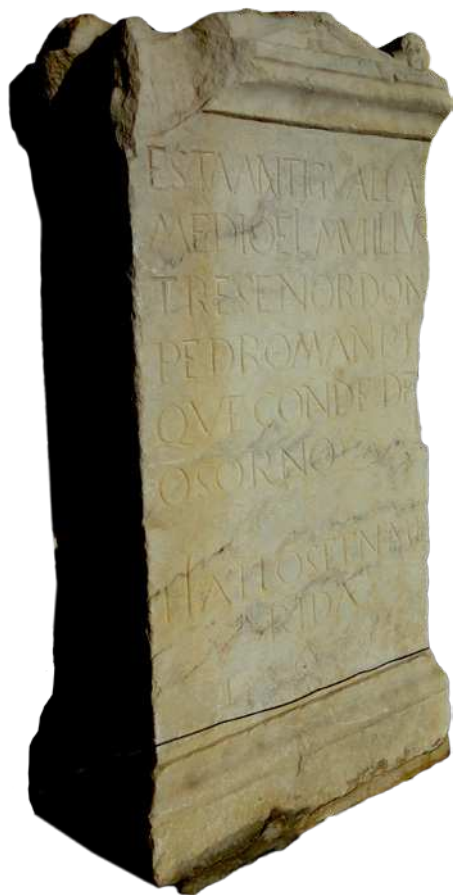 ESTA ANTIGVALLA
ME DIO EL MVI ILLVS
TRE SENOR DON
PEDRO MANRI
QVE CONDE DE
OSORNO
HALLOSE EN ME
RIDA